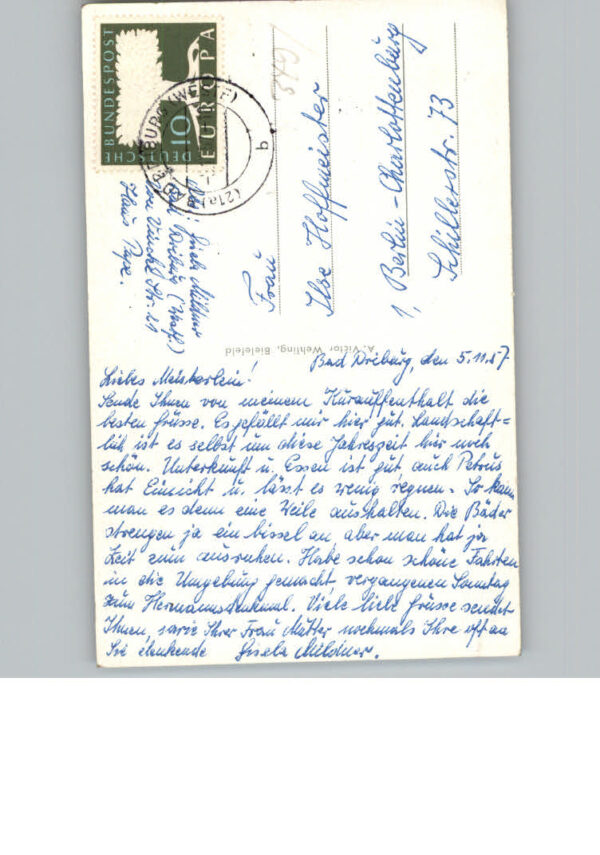 Bad Driburg, den 5.11.57
Liebes Meisterlein!
Sende Ihnen von meinem Kuraufenthalt die
besten Grüsse. Es gefällt mir hier gut. Landschaft=
lich ist es selbst um diese Jahreszeit hier noch
schön. Unterkunft u. Essen ist gut, auch Petrus
hat Einsicht u. lässt es wenig regnen. So kann
man es denn eine Weile aushalten. Die Bäder
strengen ja ein bissel an, aber man hat ja
Zeit zum ausruhen. Habe schon schöne Fahrten
in die Umgebung gemacht vergangenen Sonntag
zum Hermannsdenkmal. Viele liebe Grüsse sendet
Ihnen, sowie Ihrer Frau Mutter nochmals Ihre oft an
Sie denkende Gisela Mildner.
A. Victor Wehling, Bielefeld
Mildner
Bad Driburg (Westf.)
Str. 21
Haus Pape.
DEUTSCHE BUNDESPOST
10
EUROPA
(21a) BAD DRIBURG (WESTF)
b
Frau
Ilse Hoffmeister
1, Berlin-Charlottenburg
Schillerstr. 73